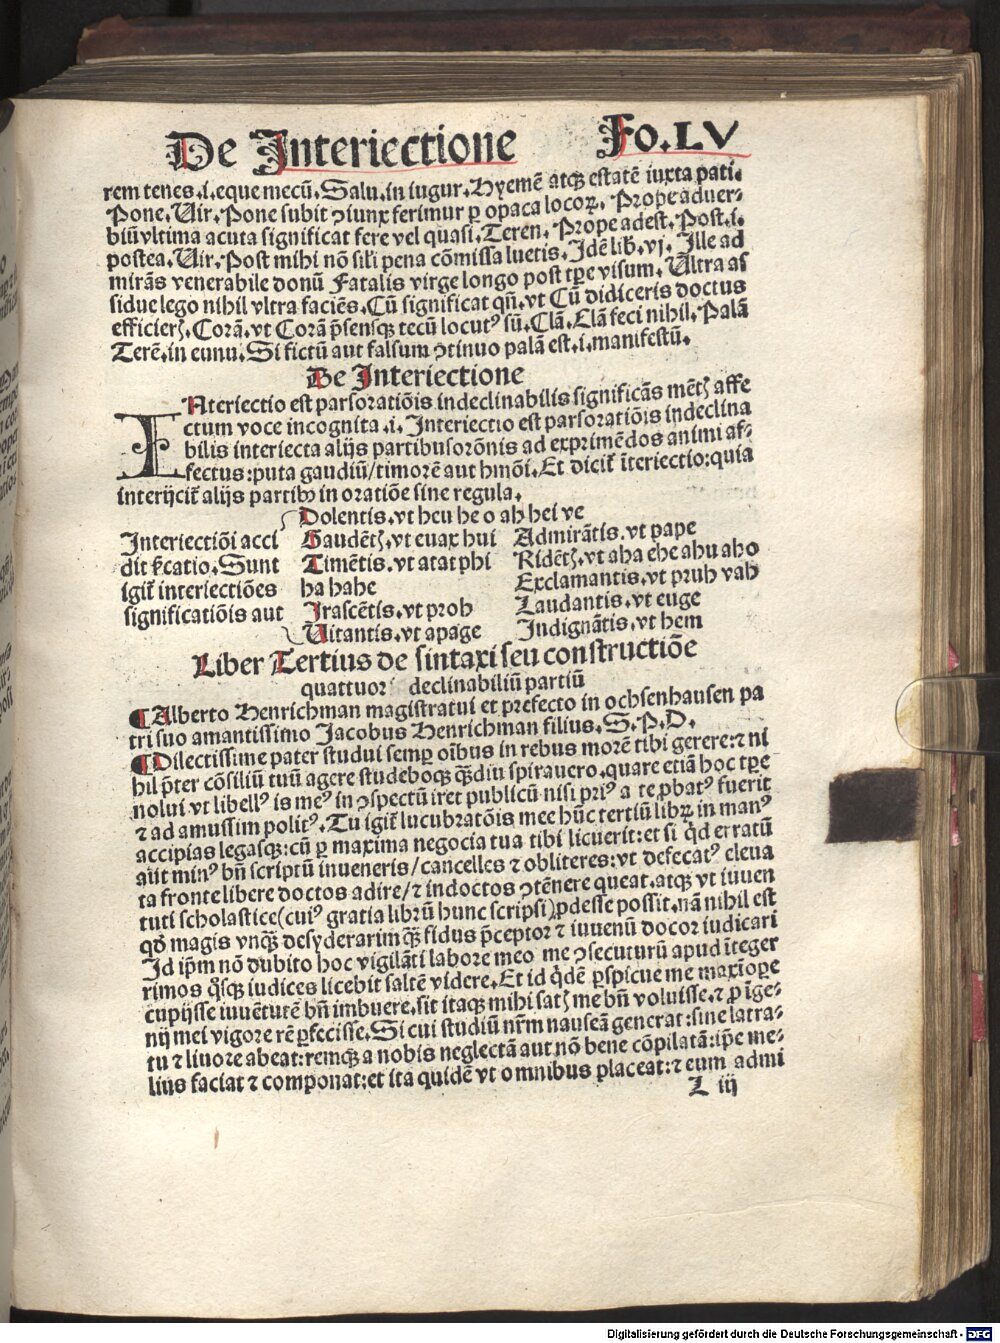 De Interiectione Fo.LV
rem tenes.i.eque mecū.Salu.in iugur.Hyemē atqꝫ estatē iuxta pati-
Pone.Uir.Pone subit ꝯiunx ferimur ꝑ opaca locoꝝ. Prope aduer-
biū vltima acuta significat fere vel quasi.Teren.Prope adest.Post.i.
postea.Uir.Post mihi nō sili pena cōmissa luetis.Idē lib.vj.Ille ad
mirās venerabile donū Fatalis virge longo post tꝑe visum.Ultra as
sidue lego nihil vltra faciēs.Cū significat qñ.vt Cū didiceris doctus
efficieris.Corā.vt Corā p̄sensqꝫ tecū locutꝰ sū.Clā.Clā feci nihil.Palā
Terē.in eunu.Si fictū aut falsum ꝯtinuo palā est.i.manifestū.
De Interiectione
INteriectio est pars oratiōis indeclinabilis significās mētis affe
ctum voce incognita.i.Interiectio est pars oratiōis indeclina
bilis interiecta alijs partibus orōnis ad exprimēdos animi af-
fectus:puta gaudiū/timorē aut hmōi.Et dicit̄ īteriectio:quia
interijcit̄ alijs partibꝰ in oratiōe sine regula.
Interiectiōi acci
dit s̄catio.Sunt
igit̄ interiectiōes
significatiōis aut
Dolentis.vt heu he o ah hei ve
Gaudētis.vt euax hui
Timētis.vt atat phi
ha hahe
Irascētis.vt proh
Uitantis.vt apage
Admirātis.vt pape
Ridētis.vt aha ehe ahu aho
Exclamantis.vt pruh vah
Laudantis.vt euge
Indignātis.vt hem
Liber Tertius de sintaxi seu constructiōe
quattuor declinabiliū partiū
¶Alberto Henrichman magistratui et prefecto in ochsenhausen pa
tri suo amantissimo Jacobus Henrichman filius.S.P.D.
¶Dilectissime pater studui semꝑ oībus in rebus morē tibi gerere:ꝛ ni
hil p̄ter cōsiliū tuū agere studeboqꝫ qꝫdiu spirauero.quare etiā hoc tꝑe
nolui vt libellꝰ is meꝰ in ꝯspectū iret publicū nisi priꝰ a te ꝓbatꝰ fuerit
ꝛ ad amussim politꝰ.Tu igit̄ lucubratōis mee hūc tertiū librū in manꝰ
accipias legasqꝫ:cū ꝑ maxima negocia tua tibi licuerit:et si qͥd erratū
aut minꝰ bn̄ scriptū inueneris/cancelles ꝛ obliteres:vt defecatꝰ eleua
ta fronte libere doctos adire/ꝛ indoctos ꝯtēnere queat.atqꝫ vt iuuen
tuti scholastice(cuiꝰ gratia librū hunc scripsi)ꝓdesse possit.nā nihil est
qd̄ magis vnqꝫ desyderarim qꝫ fidus p̄ceptor ꝛ iuuenū docor iudicari
Id ip̄m nō dubito hoc vigilāti labore meo me ꝯsecuturū apud īteger
rimos qͥsqꝫ iudices licebit saltē videre.Et id qͥdē ꝑspicue me maxīoꝑe
cupijsse iuuētutē bn̄ imbuere.sit itaqꝫ mihi satis me bn̄ voluisse.ꝛ ꝓ īge-
nij mei vigore rē ꝑfecisse.Si cui studiū nr̄m nauseā generat:sine latra-
tu ꝛ liuore abeat:remqꝫ a nobis neglectā aut nō bene cōpilatā:ip̄e me-
lius faciat ꝛ componat:et ita quidē vt omnibus placeat:ꝛ eum admi
L iij
Digitalisierung gefördert durch die Deutsche Forschungsgemeinschaft - DFG